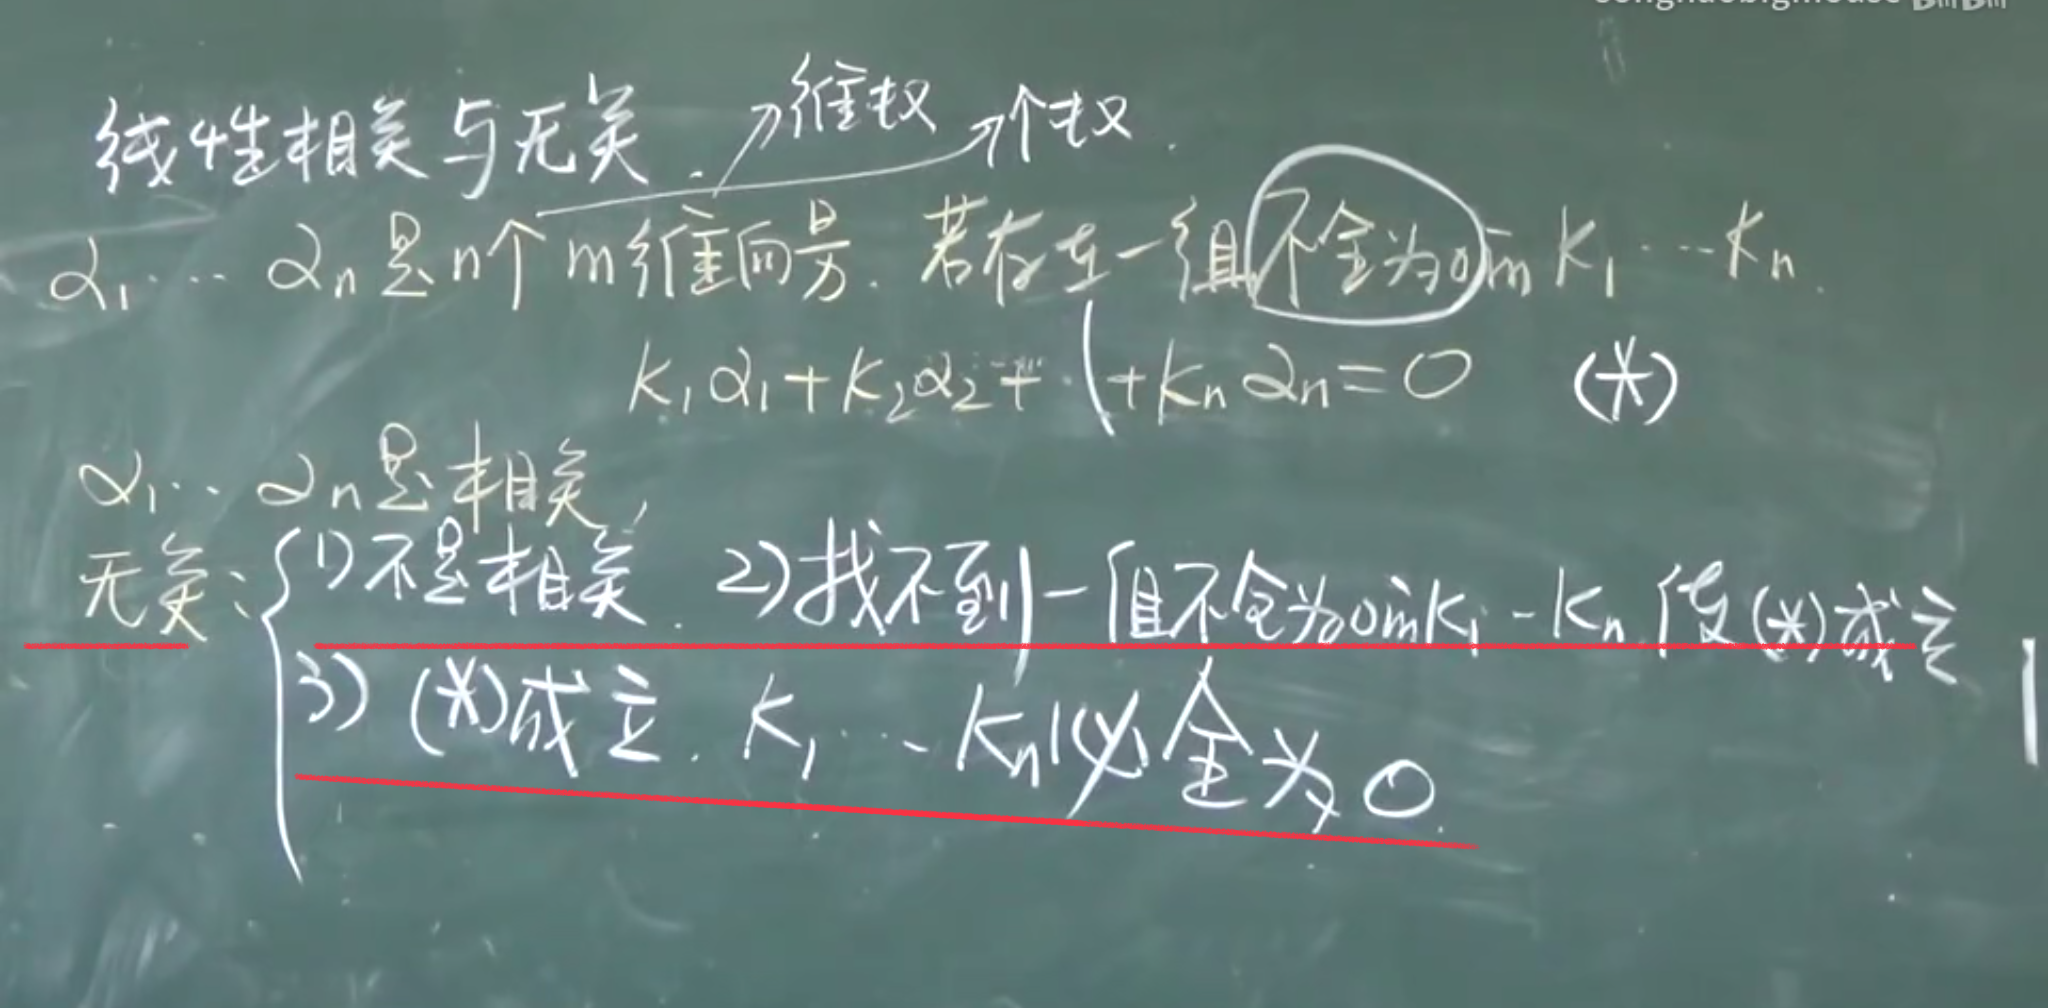 线性相关与无关. 维数 个数.
α₁…αₙ是n个m维向量. 若存在一组不全为0的k₁…kₙ.
k₁α₁+k₂α₂+…+kₙαₙ=0 (*)
α₁…αₙ是相关,
无关: 1)不是相关. 2)找不到一组不全为0的k₁…kₙ使(*)成立
3) (*)成立. k₁…kₙ必全为0.